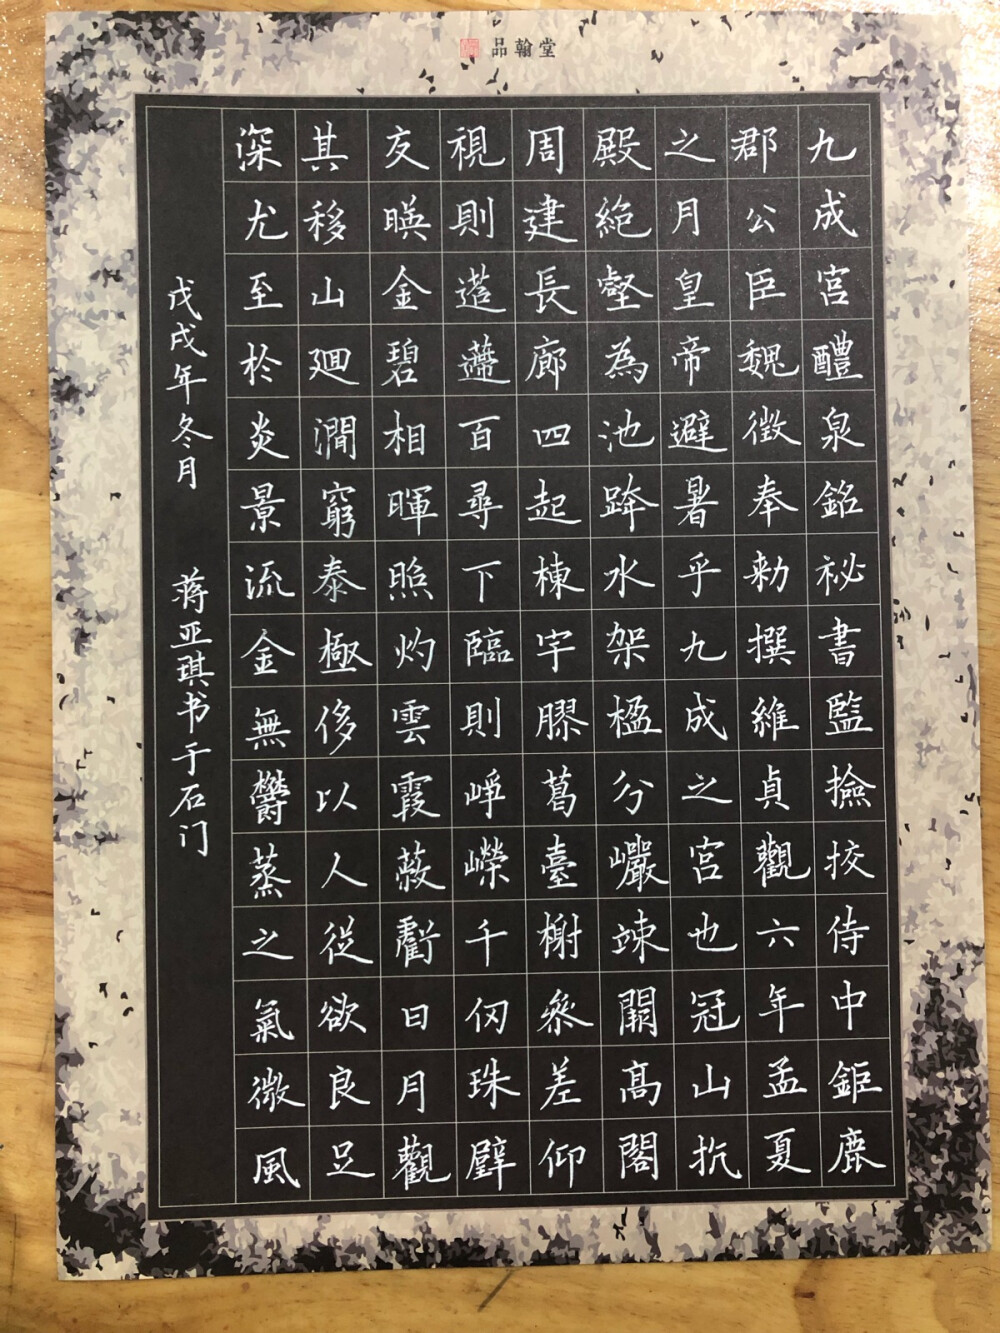 品翰堂
九成宮醴泉銘祕書監撿挍侍中鉅鹿
郡公臣魏徵奉勑撰維貞觀六年孟夏
之月皇帝避暑乎九成之宮也冠山抗
殿絶壑為池跨水架楹分巖竦闕高閣
周建長廊四起棟宇膠葛臺榭參差仰
視則迢遰百尋下臨則崢嶸千仞珠璧
交暎金碧相暉照灼雲霞蔽虧日月觀
其移山迴澗窮泰極侈以人從欲良足
深尤至於炎景流金無鬱蒸之氣微風
戊戌年冬月 蒋亚琪书于石门